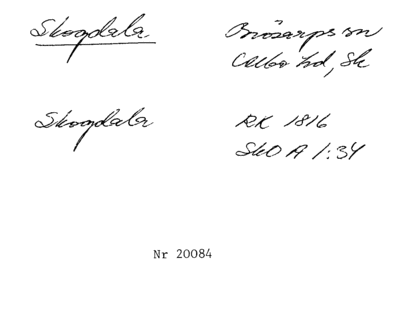 Skogdala Brösarps sn
Albo hd, Sk
Skogdala RK 1816
SkO A 1:34
Nr 20084